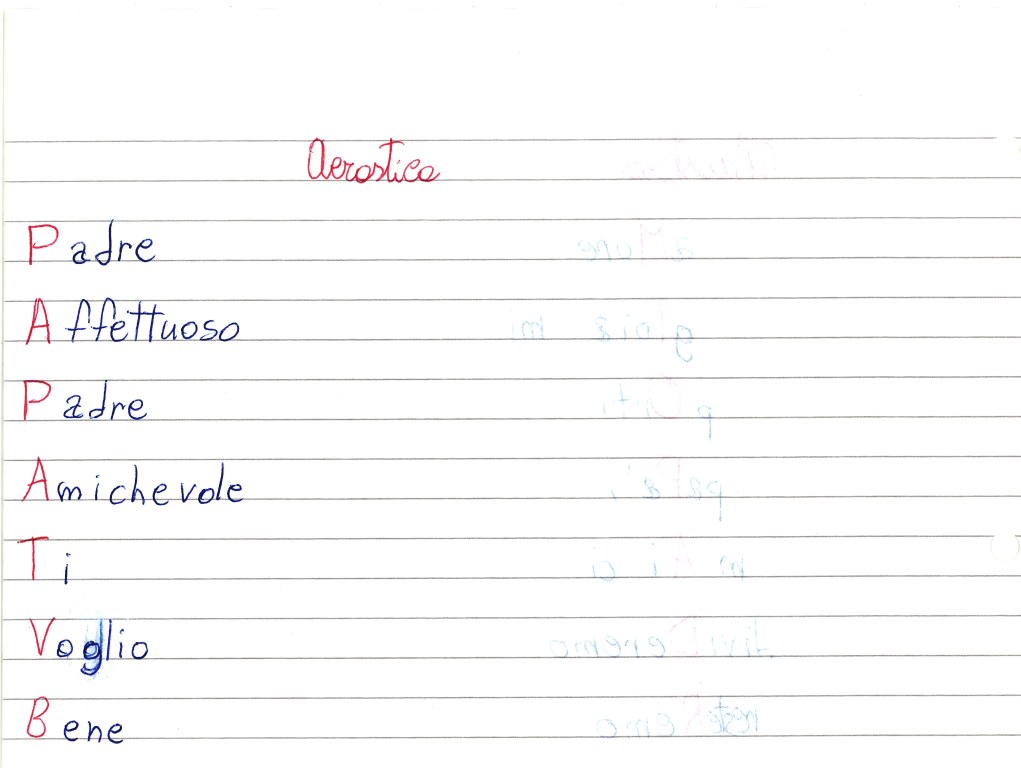 Acrostico
Padre
Affettuoso
Padre
Amichevole
Ti
Voglio
Bene